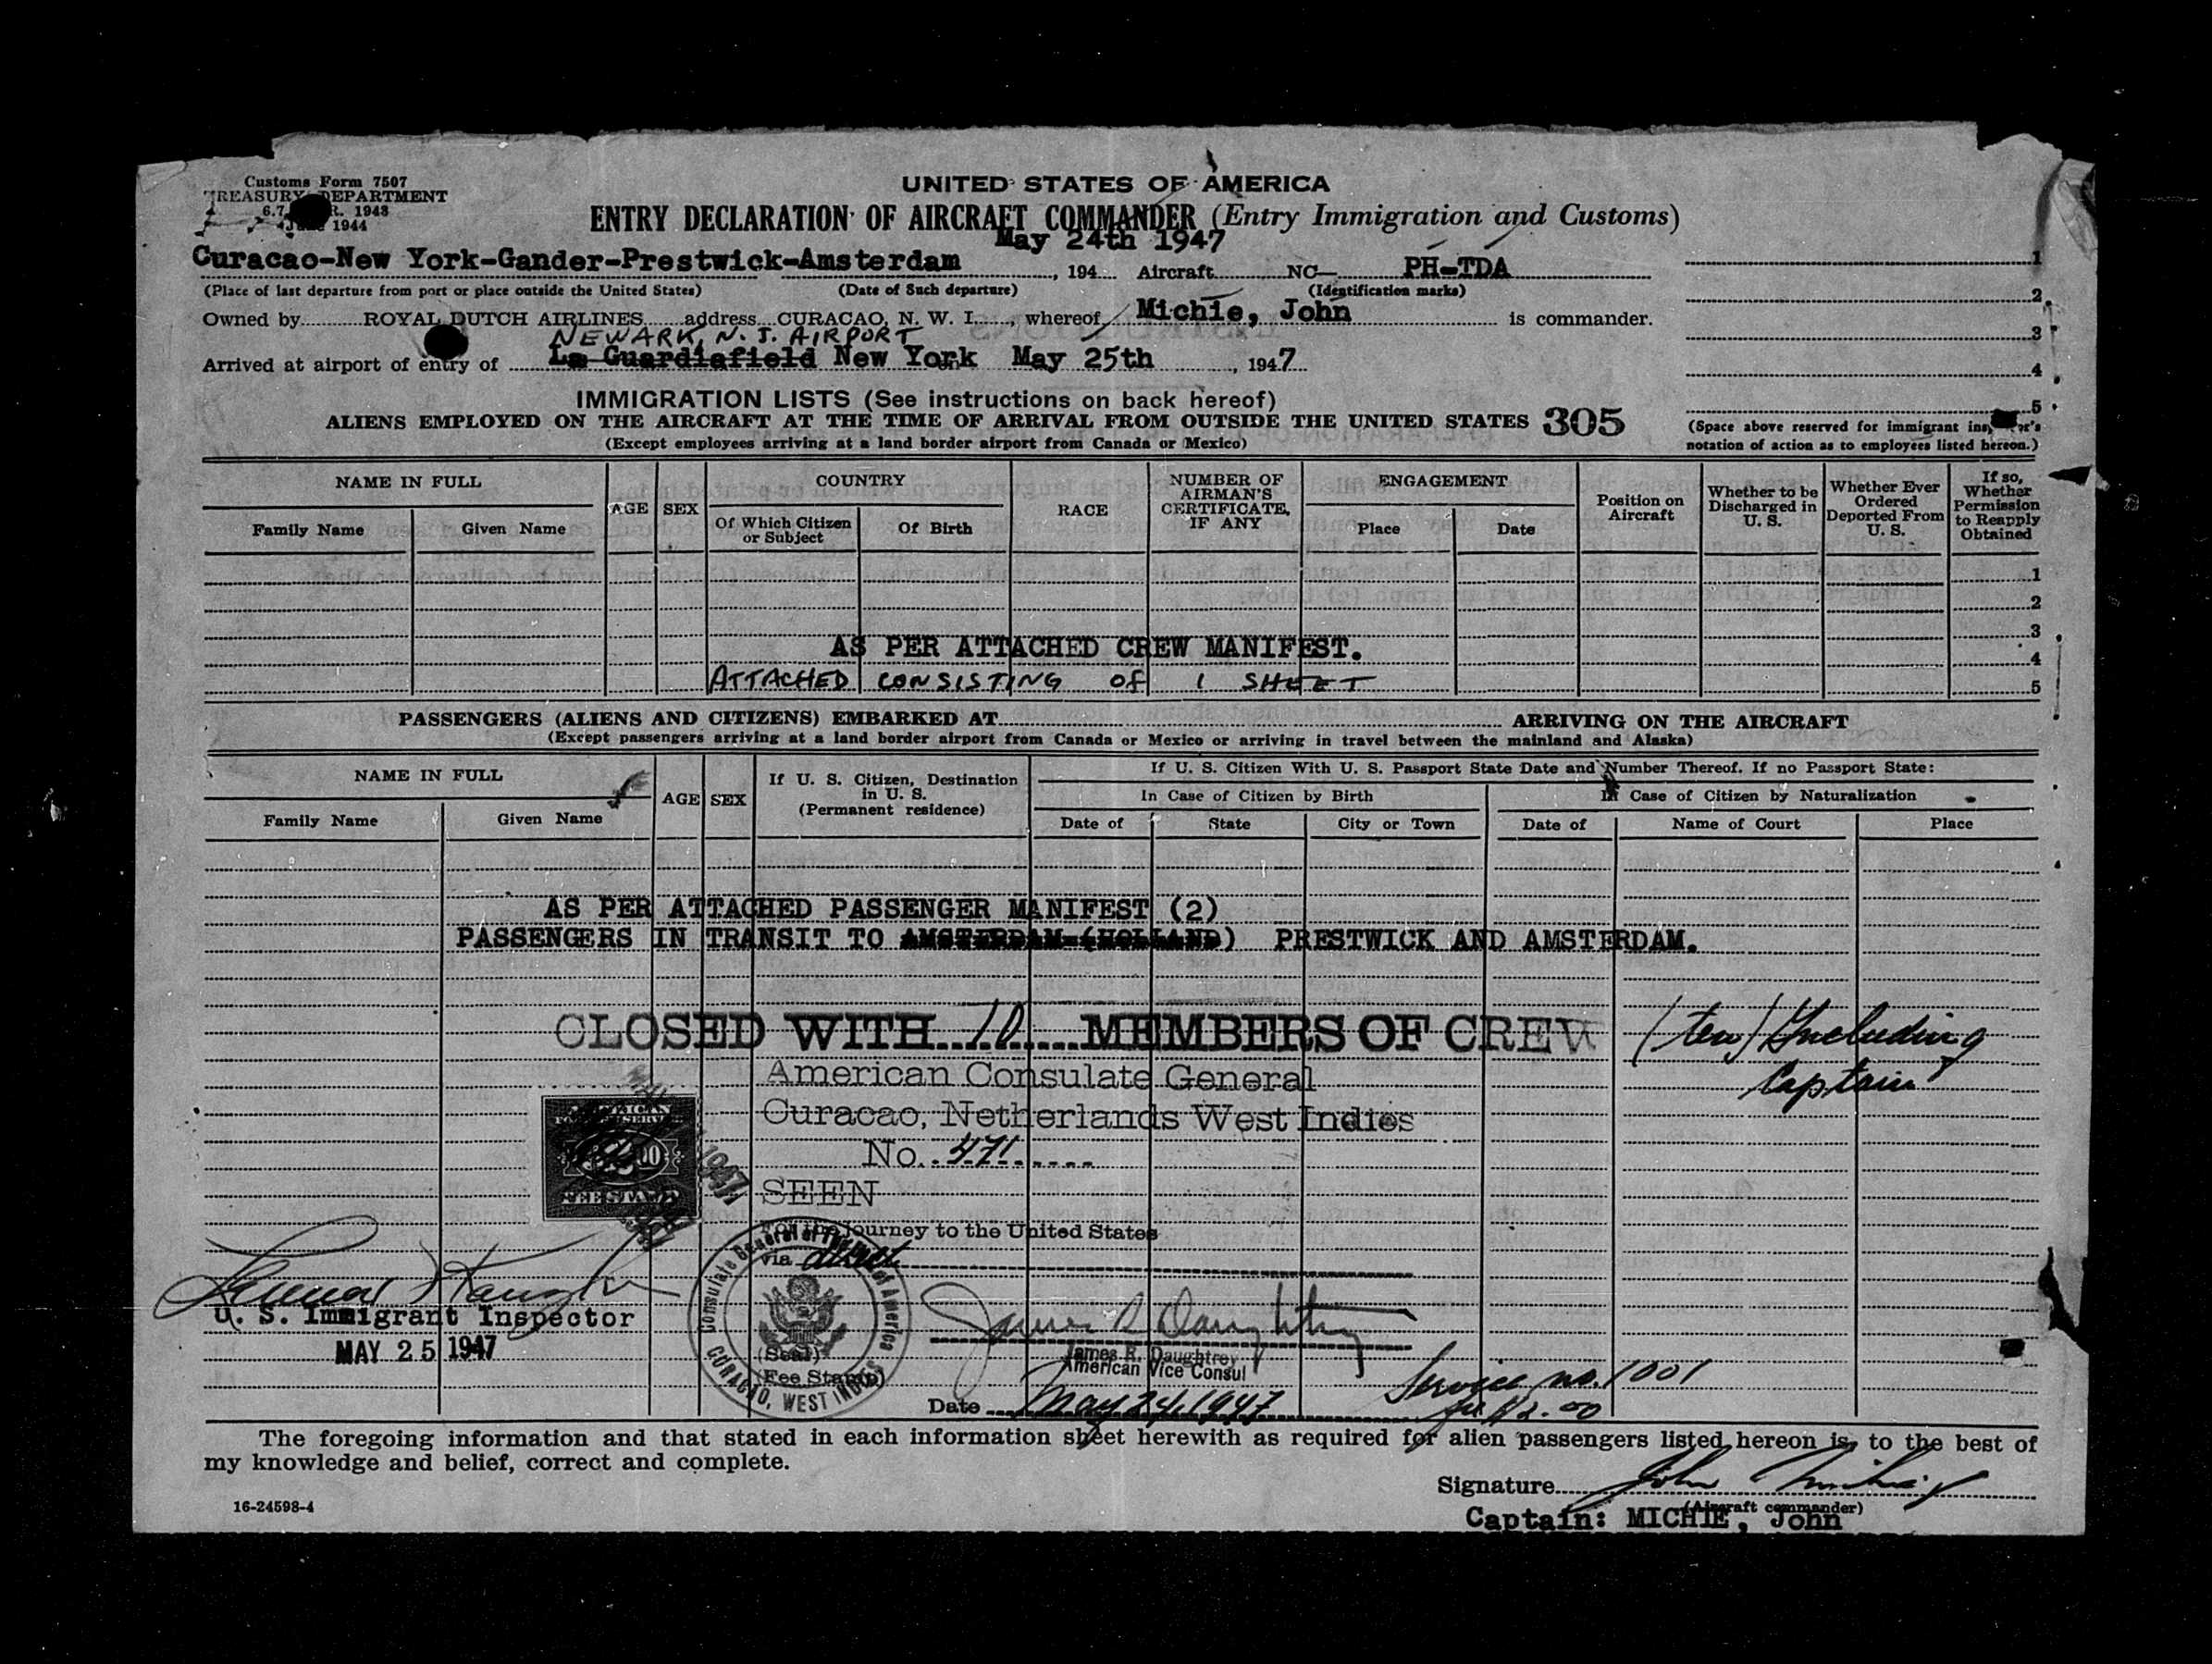 Customs Form 7507
TREASURY DEPARTMENT
1943
1944
UNITED STATES OF AMERICA
ENTRY DECLARATION OF AIRCRAFT COMMANDER (Entry Immigration and Customs)
May 24th 1947
Curacao-New York-Gander-Prestwick-Amsterdam , 194 Aircraft NC PH-TDA
(Place of last departure from port or place outside the United States) (Date of Such departure) (Identification marks)
Owned by ROYAL DUTCH AIRLINES address CURACAO, N. W. I. , whereof Michie, John is commander.
NEWARK, N. J. AIRPORT
Arrived at airport of entry of La Guardiafield New York on May 25th , 1947
1
2
3
4
5
(Space above reserved for immigrant inspector's
notation of action as to employees listed hereon.)
IMMIGRATION LISTS (See instructions on back hereof)
ALIENS EMPLOYED ON THE AIRCRAFT AT THE TIME OF ARRIVAL FROM OUTSIDE THE UNITED STATES 305
(Except employees arriving at a land border airport from Canada or Mexico)
NAME IN FULL
Family Name Given Name
AGE SEX
COUNTRY
Of Which Citizen
or Subject
Of Birth
RACE
NUMBER OF
AIRMAN'S
CERTIFICATE,
IF ANY
ENGAGEMENT
Place Date
Position on
Aircraft
Whether to be
Discharged in
U. S.
Whether Ever
Ordered
Deported From
U. S.
If so,
Whether
Permission
to Reapply
Obtained
1
2
3
AS PER ATTACHED CREW MANIFEST.
4
ATTACHED CONSISTING OF 1 SHEET
5
PASSENGERS (ALIENS AND CITIZENS) EMBARKED AT ARRIVING ON THE AIRCRAFT
(Except passengers arriving at a land border airport from Canada or Mexico or arriving in travel between the mainland and Alaska)
NAME IN FULL
Family Name Given Name
AGE SEX
If U. S. Citizen, Destination
in U. S.
(Permanent residence)
If U. S. Citizen With U. S. Passport State Date and Number Thereof. If no Passport State:
In Case of Citizen by Birth In Case of Citizen by Naturalization
Date of State City or Town Date of Name of Court Place
AS PER ATTACHED PASSENGER MANIFEST (2)
PASSENGERS IN TRANSIT TO AMSTERDAM (HOLLAND) PRESTWICK AND AMSTERDAM.
CLOSED WITH 10 MEMBERS OF CREW (ten) Including
Captain
American Consulate General
Curacao, Netherlands West Indies
No. 471
SEEN
For the journey to the United States
via direct
FEE STAMP
1947
Consulate General of The United States of America
CURACAO, WEST INDIES
(Seal)
(Fee Stamp)
U. S. Immigrant Inspector
MAY 25 1947
James R. Daughtrey
James R. Daughtrey
American Vice Consul
Date May 24, 1947
Service no. 1001
fee $2.00
The foregoing information and that stated in each information sheet herewith as required for alien passengers listed hereon is, to the best of
my knowledge and belief, correct and complete.
Signature John Michie
(Aircraft commander)
Captain: MICHIE, John
16-24598-4